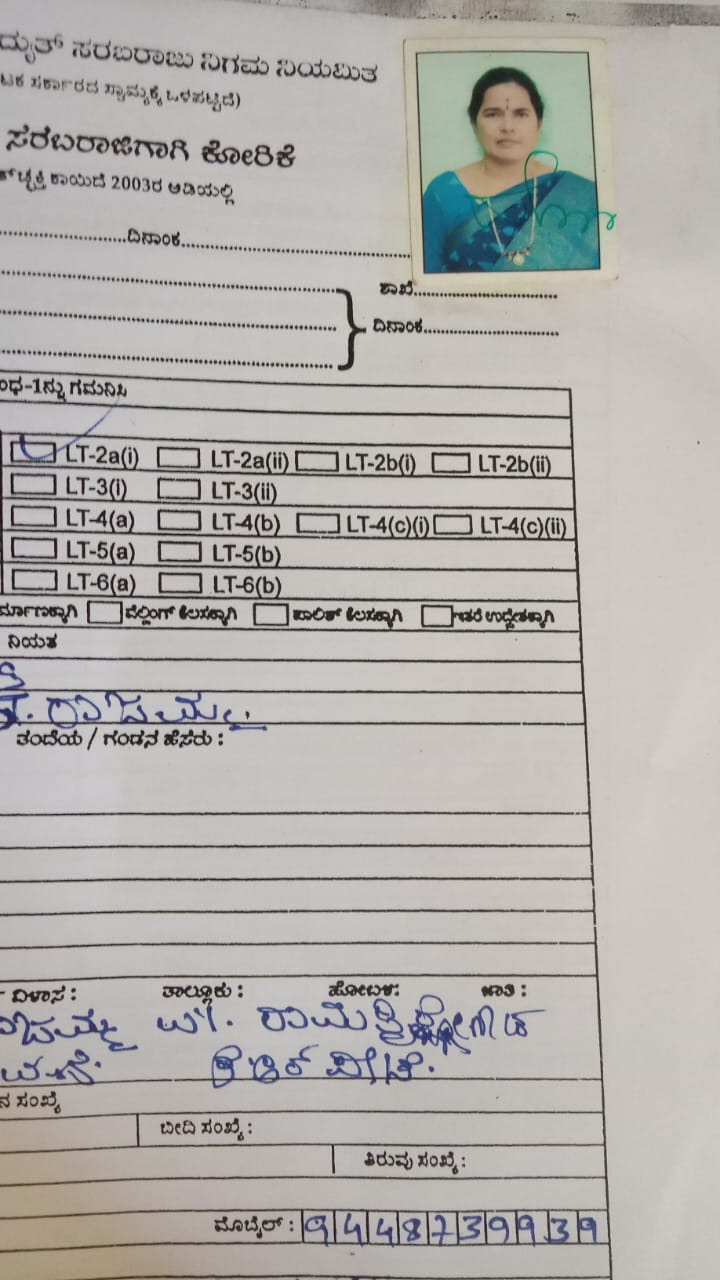 ದ್ಯುತ್ ಸರಬರಾಜು ನಿಗಮ ನಿಯಮಿತ
ಟಕ ಸರ್ಕಾರದ ಸ್ವಾಮ್ಯಕ್ಕೆ ಒಳಪಟ್ಟಿದೆ)
ಸರಬರಾಜಿಗಾಗಿ ಕೋರಿಕೆ
ಕಾಯಿದೆ 2003ರ ಅಡಿಯಲ್ಲಿ
ದಿನಾಂಕ
ಶಾಖೆ
ದಿನಾಂಕ
ಂಧ-1ನ್ನು ಗಮನಿಸಿ
LT-2a(i) LT-2a(ii) LT-2b(i) LT-2b(ii)
LT-3(i) LT-3(ii)
LT-4(a) LT-4(b) LT-4(c)(i) LT-4(c)(ii)
LT-5(a) LT-5(b)
LT-6(a) LT-6(b)
ರ್ಮಾಣಕ್ಕಾಗಿ ವೆಲ್ಡಿಂಗ್ ಕೆಲಸಕ್ಕಾಗಿ ಪಾಲಿಶ್ ಕೆಲಸಕ್ಕಾಗಿ ಇತರೆ ಉದ್ದೇಶಕ್ಕಾಗಿ
ನಿಯತ
ರಾಜಮ್ಮ
ತಂದೆಯ / ಗಂಡನ ಹೆಸರು :
ವಿಳಾಸ : ತಾಲ್ಲೂಕು : ಹೋಬಳಿ: ಜಾತಿ :
ನ ಸಂಖ್ಯೆ
ಬೀದಿ ಸಂಖ್ಯೆ :
ತಿರುವು ಸಂಖ್ಯೆ :
ಮೊಬೈಲ್ : 9448739939